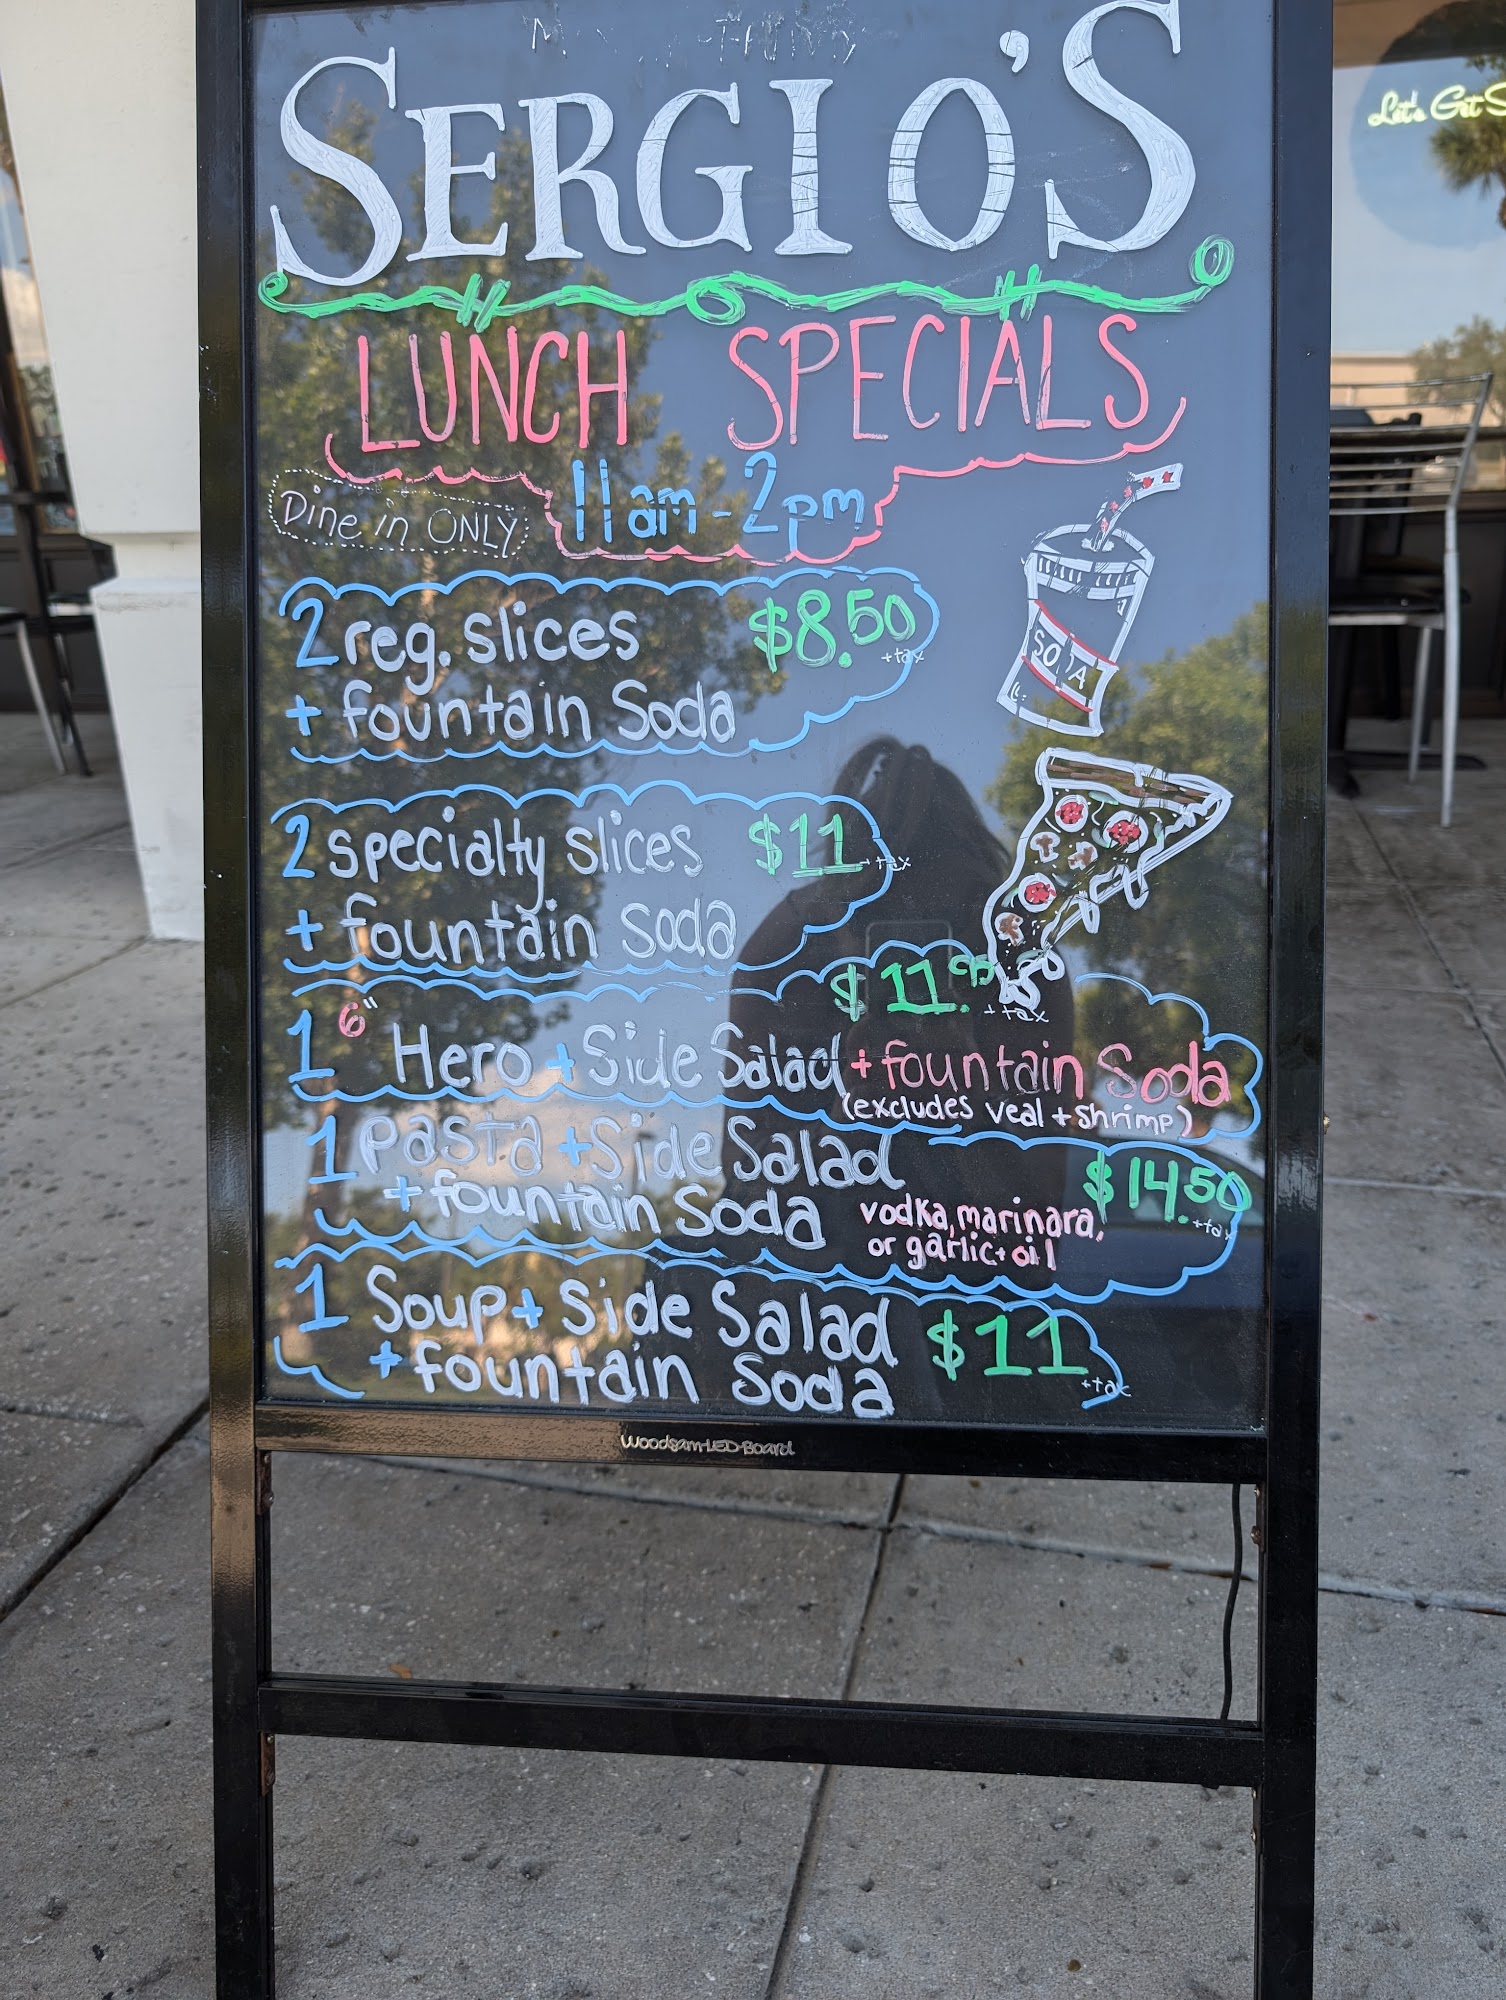 SERGIO'S
LUNCH SPECIALS
Dine in ONLY
11am - 2pm
2 reg. slices $8.50 +tax
+ fountain Soda
SODA
2 specialty slices $11 +tax
+ fountain soda
$11.95 +tax
1 6" Hero + Side Salad + fountain Soda
(excludes veal + shrimp)
1 Pasta + Side Salad $14.50 +tax
+ fountain Soda
vodka, marinara,
or garlic + oil
1 Soup + Side Salad $11 +tax
+ fountain Soda
Woodsam-LED-Board
Let's Get